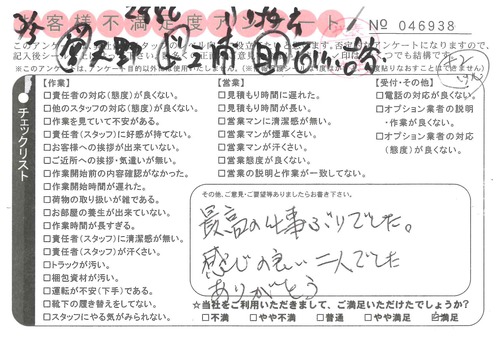 お客様不満足度アンケート
№ 046938
このアンケー
記入後シー
チェックリスト
【作業】
□責任者の対応(態度)が良くない。
□他のスタッフの対応(態度)が良くない。
□作業を見ていて不安がある。
□責任者(スタッフ)に好感が持てない。
□お客様への挨拶が出来ていない。
□ご近所への挨拶・気遣いが無い。
□作業開始前の内容確認がなかった。
□作業開始時間が遅れた。
□荷物の取り扱いが雑である。
□お部屋の養生が出来ていない。
□作業時間が長すぎる。
□責任者(スタッフ)に清潔感が無い。
□責任者(スタッフ)が汗くさい。
□トラックが汚い。
□梱包資材が汚い。
□運転が不安(下手)である。
□靴下の履き替えをしてない。
□スタッフにやる気がみられない。
【営業】
□見積もり時間に遅れた。
□見積もり時間が長い。
□営業マンに清潔感が無い。
□営業マンが煙草くさい。
□営業マンが汗くさい。
□営業態度が良くない。
□営業の説明と作業が一致してない。
【受付・その他】
□電話の対応が良くない。
□オプション業者の説明・作業が良くない。
□オプション業者の対応(態度)が良くない。
その他、ご意見・ご要望等ありましたらお書き下さい。
最高の仕事ぶりでした。
感じの良い二人でした
ありがとう
☆当社をご利用いただきまして、ご満足いただけたでしょうか?
□不満 □やや不満 □普通 □やや満足 ☑満足